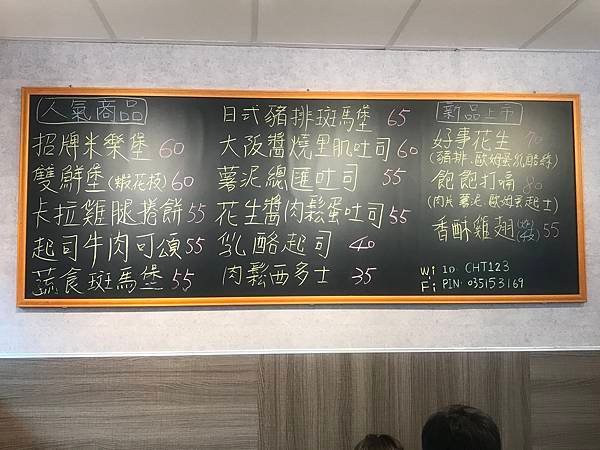 人氣商品
招牌米漿堡 60
雙鮮堡(蝦花枝) 60
卡拉雞腿捲餅 55
起司牛肉可頌 55
蔬食斑馬堡 55
日式豬排斑馬堡 65
大阪醬燒里肌吐司 60
薯泥總匯吐司 55
花生醬肉鬆蛋吐司 55
乳酪起司 40
肉鬆西多士 35
新品上市
好事花生 70
(豬排.歐姆蛋.乳酪絲)
飽飽打嗝 80
(肉片 薯泥 歐姆蛋 起士)
香酥雞翅 55
Wi Fi
ID: CHT123
PIN: 035153169